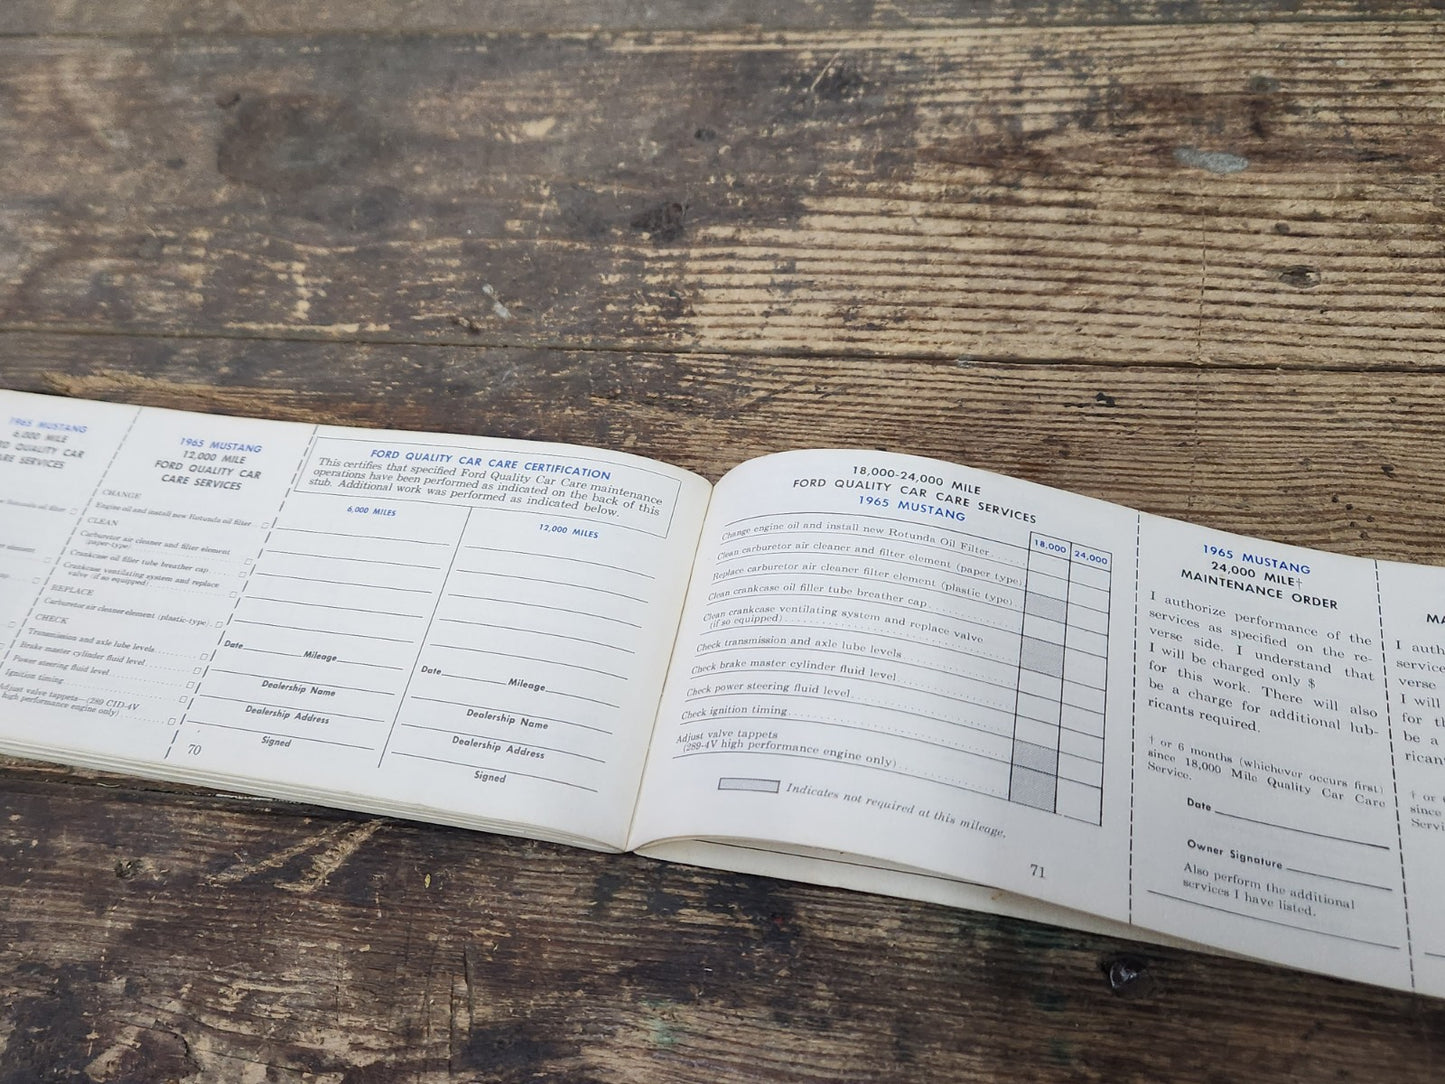 1965 MUSTANG
6,000 MILE
QUALITY CAR
SERVICES
1965 MUSTANG
12,000 MILE
FORD QUALITY CAR
CARE SERVICES
CHANGE
Engine oil and install new Rotunda oil filter
CLEAN
Carburetor air cleaner and filter element
(paper-type)
Crankcase oil filler tube breather cap
Crankcase ventilating system and replace
valve (if so equipped)
REPLACE
Carburetor air cleaner element (plastic-type)
CHECK
Transmission and axle lube levels
Brake master cylinder fluid level
Power steering fluid level
Ignition timing
Adjust valve tappets—(289 CID-4V
high performance engine only)
FORD QUALITY CAR CARE CERTIFICATION
This certifies that specified Ford Quality Car Care maintenance
operations have been performed as indicated on the back of this
stub. Additional work was performed as indicated below.
6,000 MILES
Date Mileage
Dealership Name
Dealership Address
Signed
12,000 MILES
Date Mileage
Dealership Name
Dealership Address
Signed
70
18,000-24,000 MILE
FORD QUALITY CAR CARE SERVICES
1965 MUSTANG
18,000 24,000
Change engine oil and install new Rotunda Oil Filter
Clean carburetor air cleaner and filter element (paper type)
Replace carburetor air cleaner filter element (plastic type)
Clean crankcase oil filler tube breather cap
Clean crankcase ventilating system and replace valve
(if so equipped)
Check transmission and axle lube levels
Check brake master cylinder fluid level
Check power steering fluid level
Check ignition timing
Adjust valve tappets
(289-4V high performance engine only)
Indicates not required at this mileage.
71
1965 MUSTANG
24,000 MILE†
MAINTENANCE ORDER
I authorize performance of the
services as specified on the re-
verse side. I understand that
I will be charged only $
for this work. There will also
be a charge for additional lub-
ricants required.
† or 6 months (whichever occurs first)
since 18,000 Mile Quality Car Care
Service.
Date
Owner Signature
Also perform the additional
services I have listed.
I auth
service
verse
I will
for th
be a
rican
† or
since
Servi